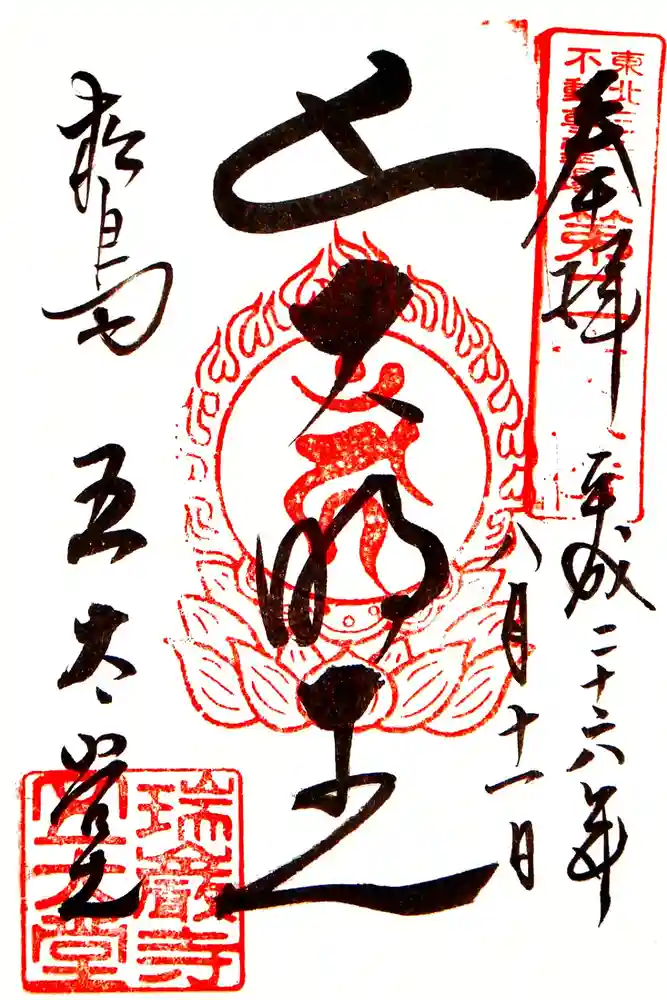 奉拝
平成二十六年
八月十一日
五大明王
松島
五大堂
東北三十六
不動尊霊場
第
瑞巌寺
五大堂